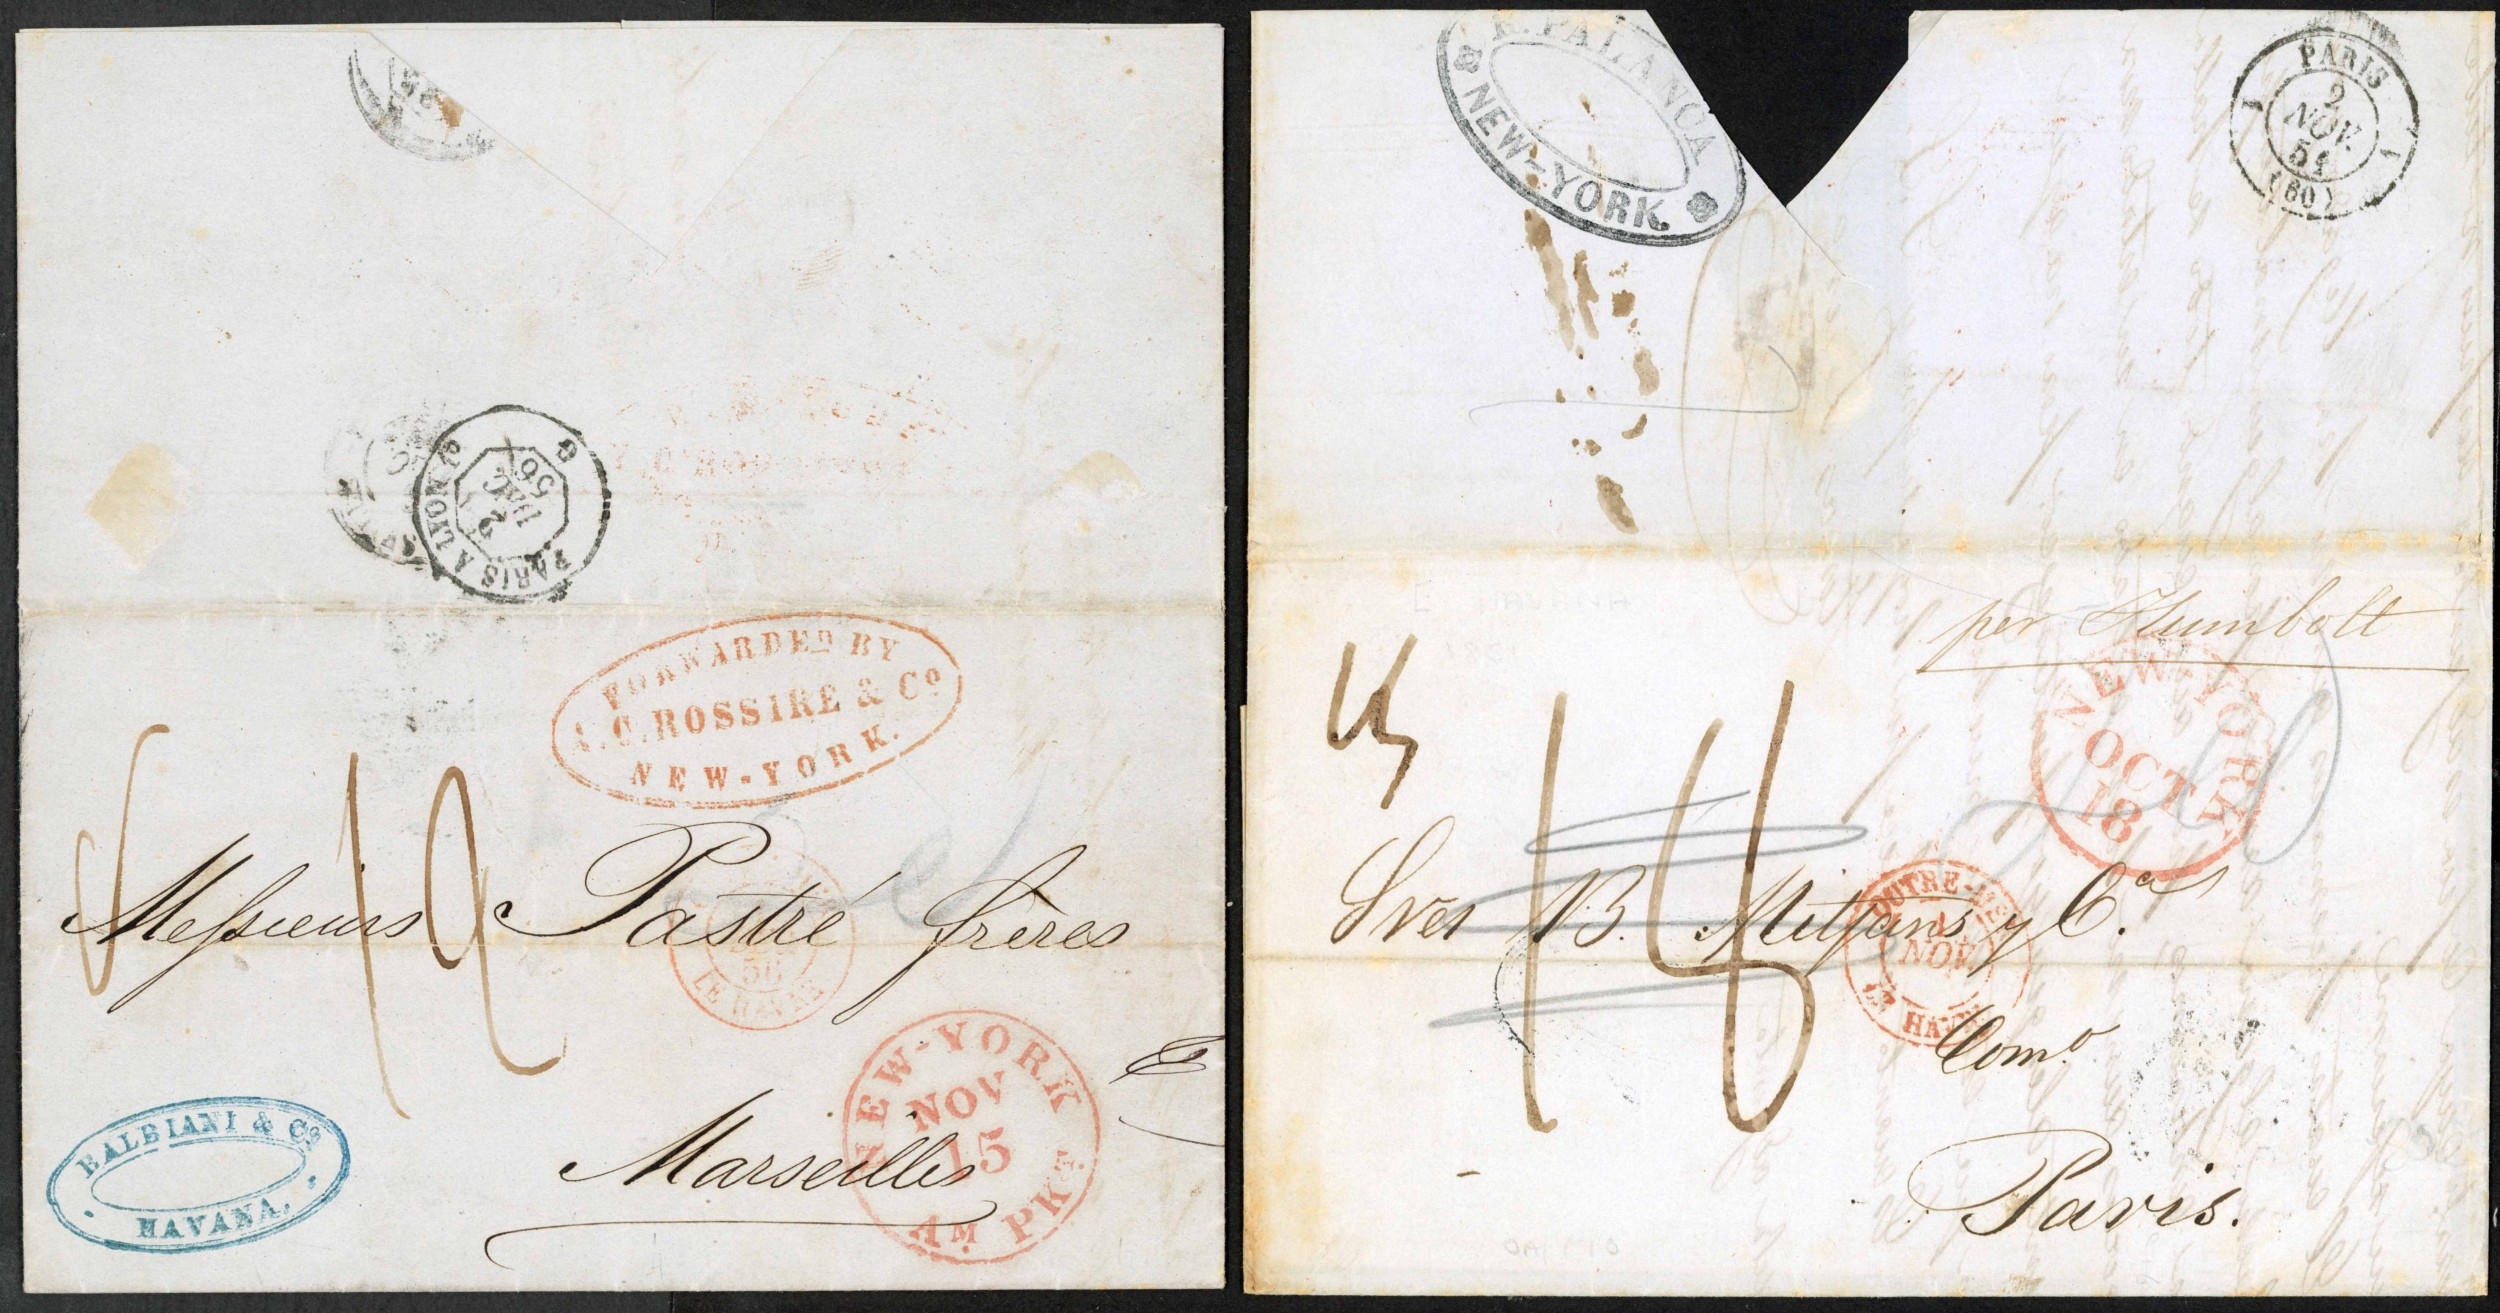 PARIS A LYON
2º
G
2
DEC
56
FORWARDED BY
A. C. ROSSIRE & Cº
NEW-YORK.
12
Messieurs Pastré frères
56
LE HAVRE
Marseilles
NEW-YORK
NOV
15
AM. PKT.
BALBIANI & Cº
HAVANA.
PALANCA
NEW-YORK.
PARIS
2
NOV.
51
(60)
per Humbolt
NEW-YORK
OCT
18
Sres B. Mitjans y Ca.
OUTRE-MER
1
NOV
LE HAVRE
Como
Paris.